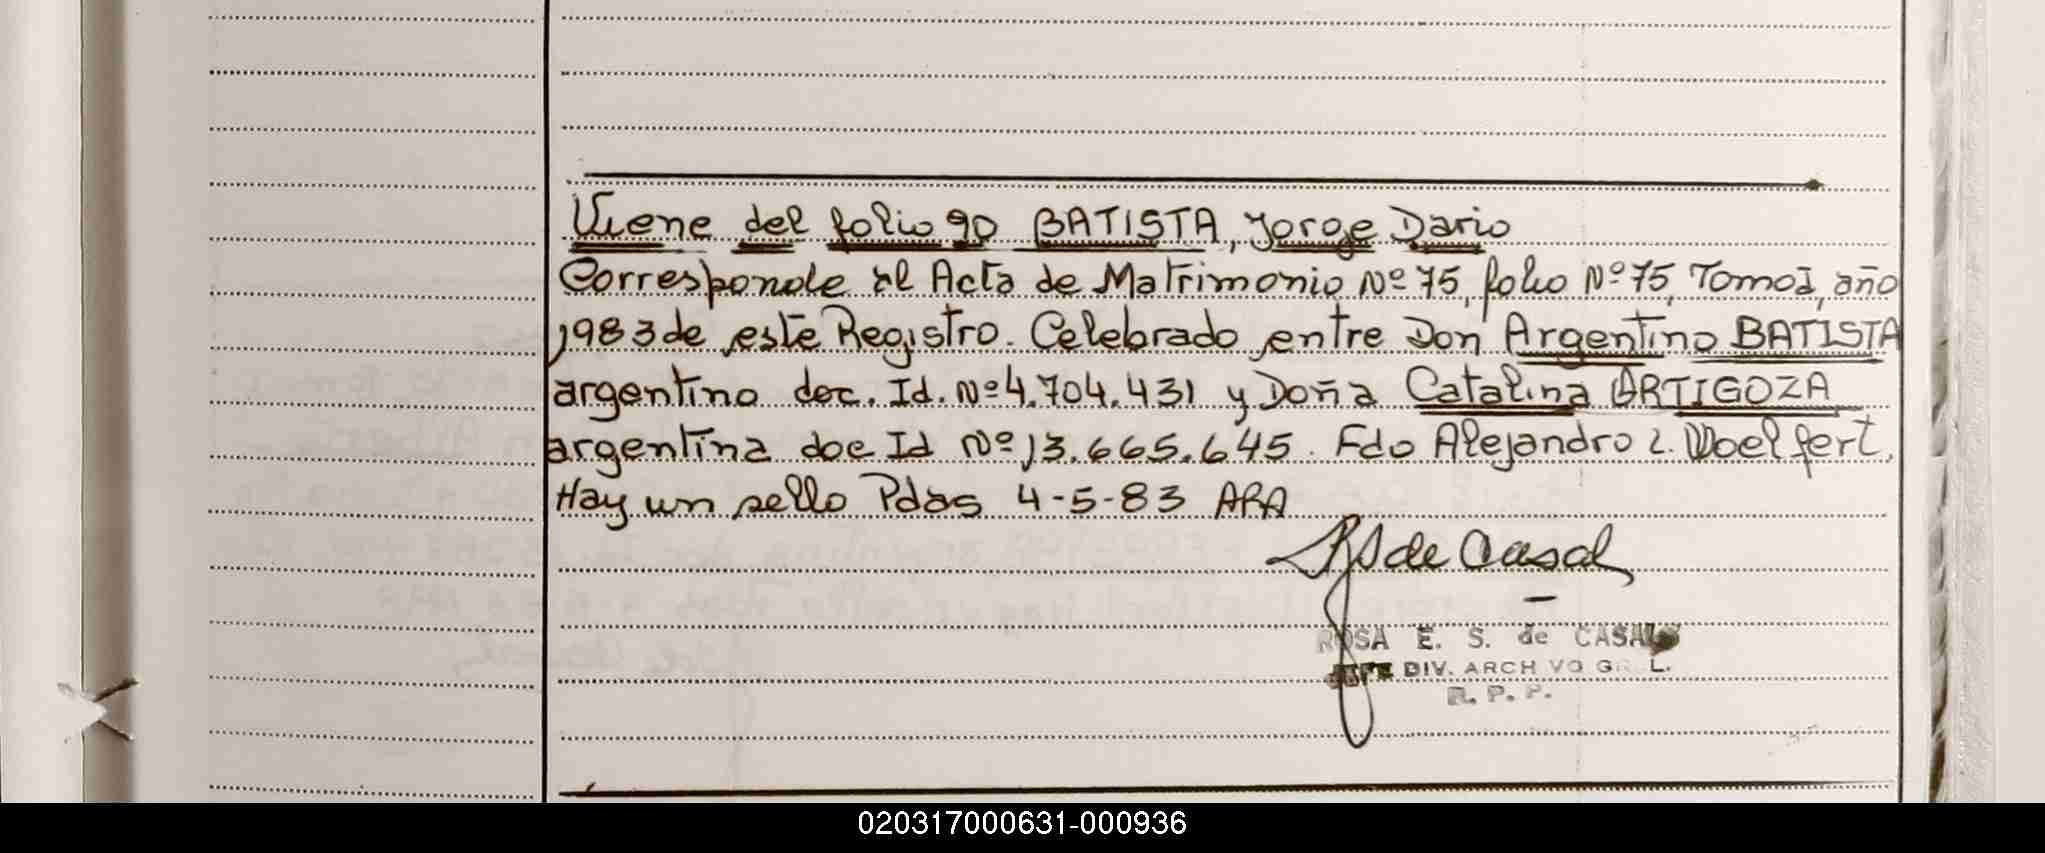 Viene del folio 90 BATISTA, Jorge Dario
Corresponde al Acta de Matrimonio Nº 75, folio Nº 75, Tomo I, año
1983 de este Registro. Celebrado entre Don Argentino BATISTA
argentino doc. Id. Nº 4.704.431 y Doña Catalina ARTIGOZA
argentina doc Id Nº 13.665.645. Fdo Alejandro L. Woelfert.
Hay un sello Pdas 4-5-83 ARA
de Casal
ROSA E. S. de CASAL
JEFE DIV. ARCHIVO GRL.
R. P. P.
020317000631-000936